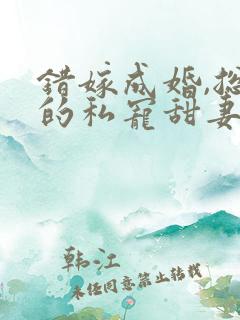 错嫁成婚,总
的私宠甜妻
韩江
未经同意禁止转载